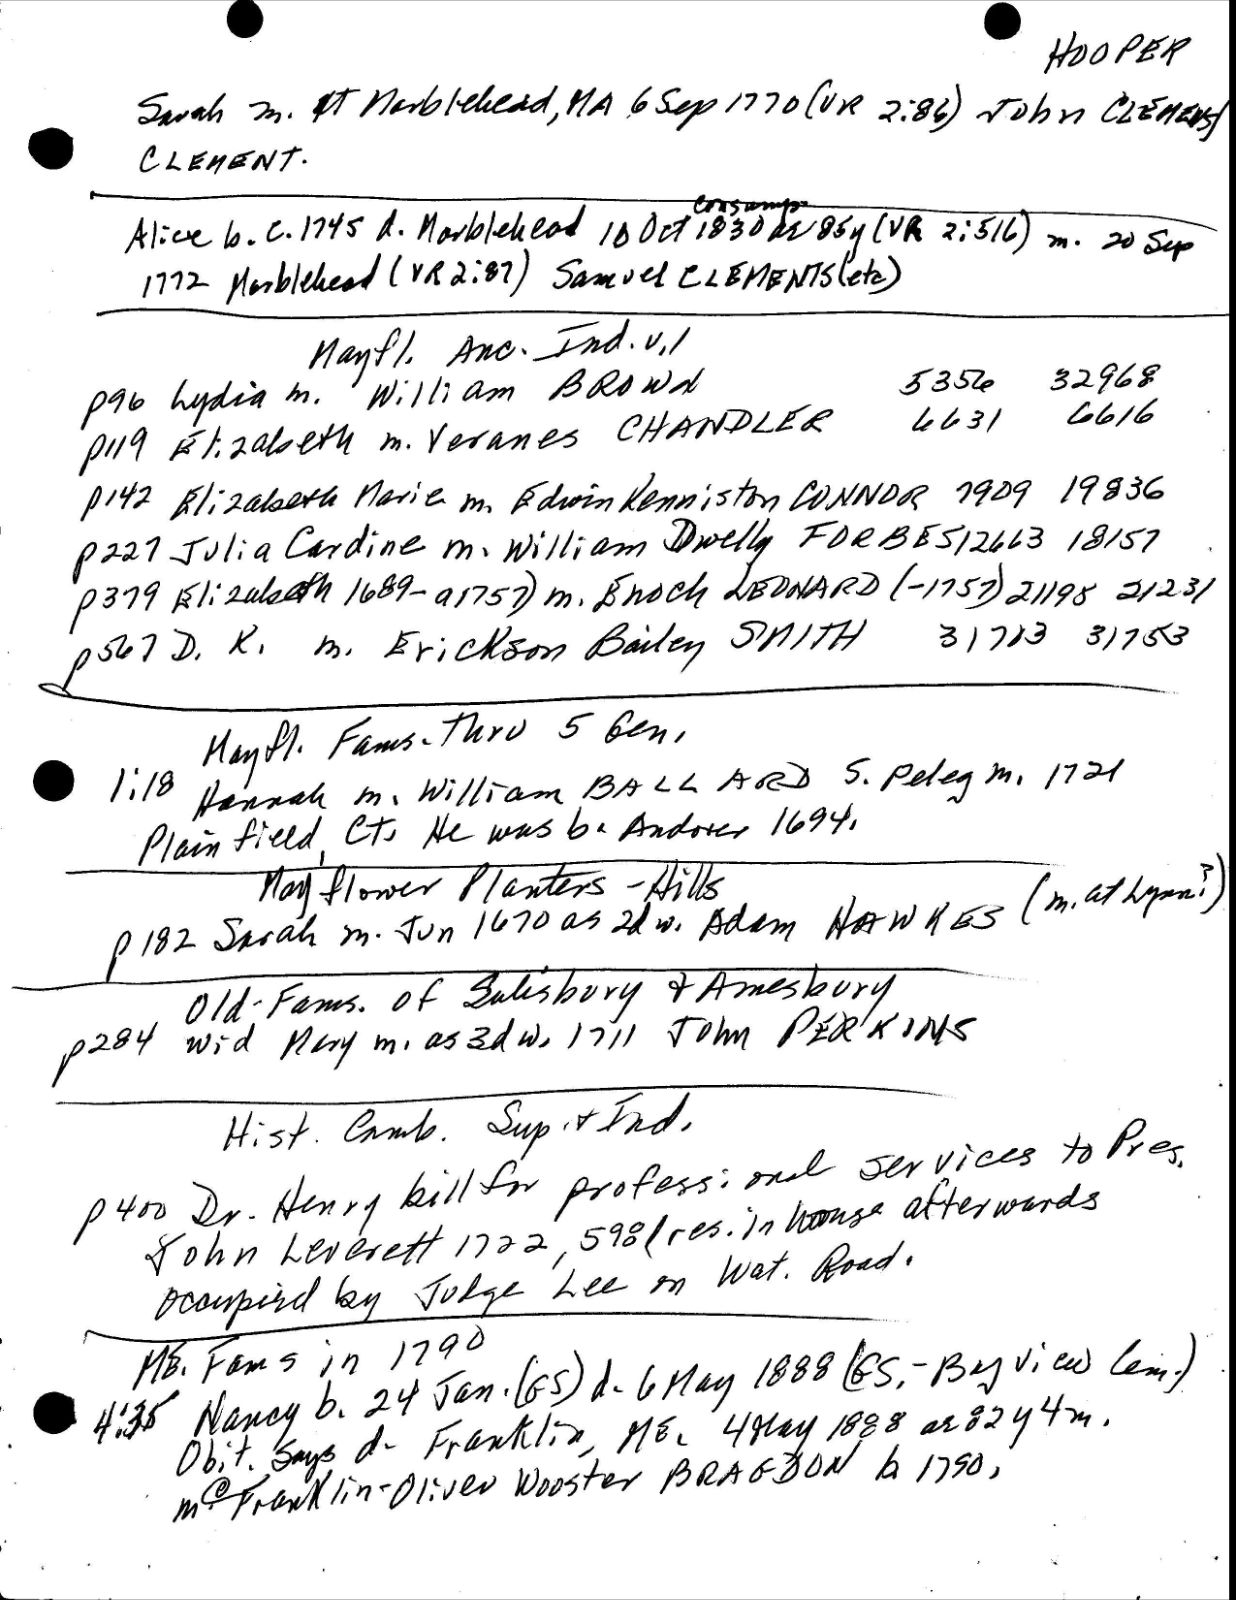 HOOPER
Sarah m. at Marblehead, MA 6 Sep 1770 (VR 2:86) John CLEMENS/
CLEMENT.
consump.
Alice b. c. 1745 d. Marblehead 10 Oct 1830 ae 85y (VR 2:516) m. 20 Sep
1772 Marblehead (VR 2:87) Samuel CLEMENTS (etc)
Mayfl. Anc. Ind. v.1
p96 Lydia m. William BROWN 5356 32968
p119 Elizabeth m. Veranes CHANDLER 6631 6616
p142 Elizabeth Marie m. Edwin Kenniston CONNOR 7909 19836
p227 Julia Cardine m. William Dwelly FORBES 12663 18157
p379 Elizabeth 1689-a1757) m. Enoch LEONARD (-1757) 21198 21231
p567 D. K. m. Erickson Bailey SMITH 31713 31753
Mayfl. Fams. Thru 5 Gen.
1:18 Hannah m. William BALLARD S. Peleg m. 1721
Plainfield, CT. He was b. Andover 1694.
Mayflower Planters - Hills
p182 Sarah m. Jun 1670 as 2d w. Adam HAWKES (m. at Lynn?)
Old Fams. of Salisbury & Amesbury
p284 wid Mary m. as 3d w. 1711 John PERKINS
Hist. Camb. Sup. & Ind.
p400 Dr. Henry bill for professional services to Pres.
John Leverett 1722, 598 (res. in house afterwards
occupied by Judge Lee on Wat. Road.
ME. Fams in 1790
4:35 Nancy b. 24 Jan. (GS) d. 6 May 1888 (GS. - Bayview Cem.)
Obit. says d. Franklin, ME. 4 May 1888 ae 82y 4m.
m @ Franklin - Oliver Wooster BRAGDON b 1790.